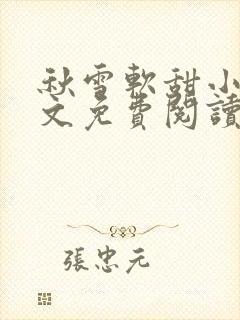 秋雪軟甜小
文免費閱讀
張忠元